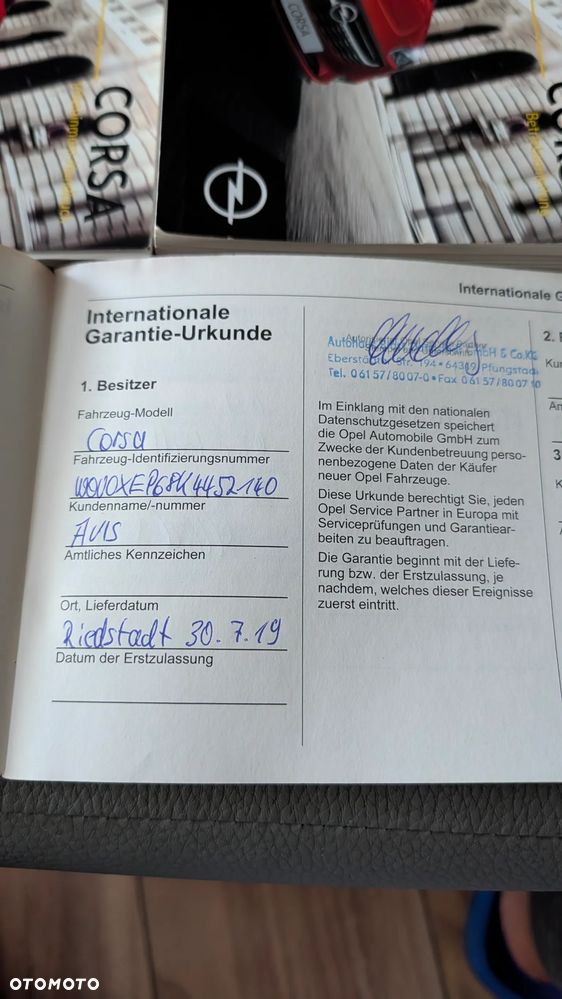 CORSA
CORSA
Internationale
Internationale
Garantie-Urkunde
1. Besitzer
Fahrzeug-Modell
Corsa
Fahrzeug-Identifizierungsnummer
W0V0XEP68K4452140
Kundenname/-nummer
AVIS
Amtliches Kennzeichen
Ort, Lieferdatum
Riedstadt 30.7.19
Datum der Erstzulassung
GmbH & Co.KG
Str. 194 • 64319 Pfungstadt
Tel. 06157/8007-0 • Fax 06157/800710
Im Einklang mit den nationalen
Datenschutzgesetzen speichert
die Opel Automobile GmbH zum
Zwecke der Kundenbetreuung perso-
nenbezogene Daten der Käufer
neuer Opel Fahrzeuge.
Diese Urkunde berechtigt Sie, jeden
Opel Service Partner in Europa mit
Serviceprüfungen und Garantiear-
beiten zu beauftragen.
Die Garantie beginnt mit der Liefe-
rung bzw. der Erstzulassung, je
nachdem, welches dieser Ereignisse
zuerst eintritt.
2.
3
OTOMOTO